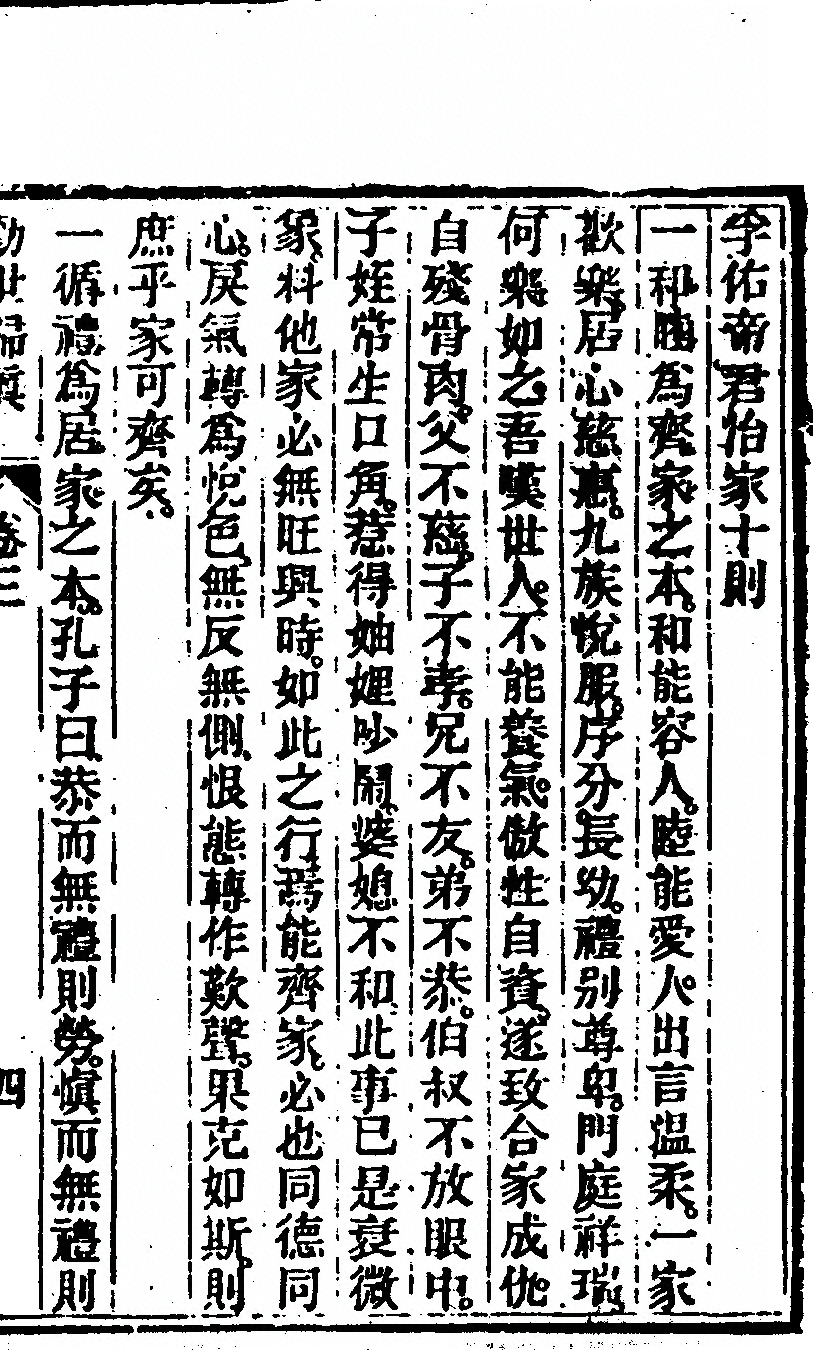 孚佑帝君怡家十則
一和睦爲齊家之本。和能容人。睦能愛人。出言溫柔。一家
歡樂。居心慈惠。九族悅服。序分長幼。禮別尊卑。門庭祥瑞。
何樂如之。吾嘆世人。不能養氣。傲性自資。遂致合家成仇。
自殘骨肉。父不慈。子不孝。兄不友。弟不恭。伯叔不放眼中。
子姪常生口角。惹得妯娌吵鬧、婆媳不和、此事已是衰微
象、料他家必無旺興時。如此之行、焉能齊家、必也同德同
心。戾氣轉爲悅色、無反無側、恨態轉作歎聲。果克如斯、則
庶乎家可齊矣。
一循禮爲居家之本。孔子曰、恭而無禮則勞。愼而無禮則
勸世歸眞
卷三
四